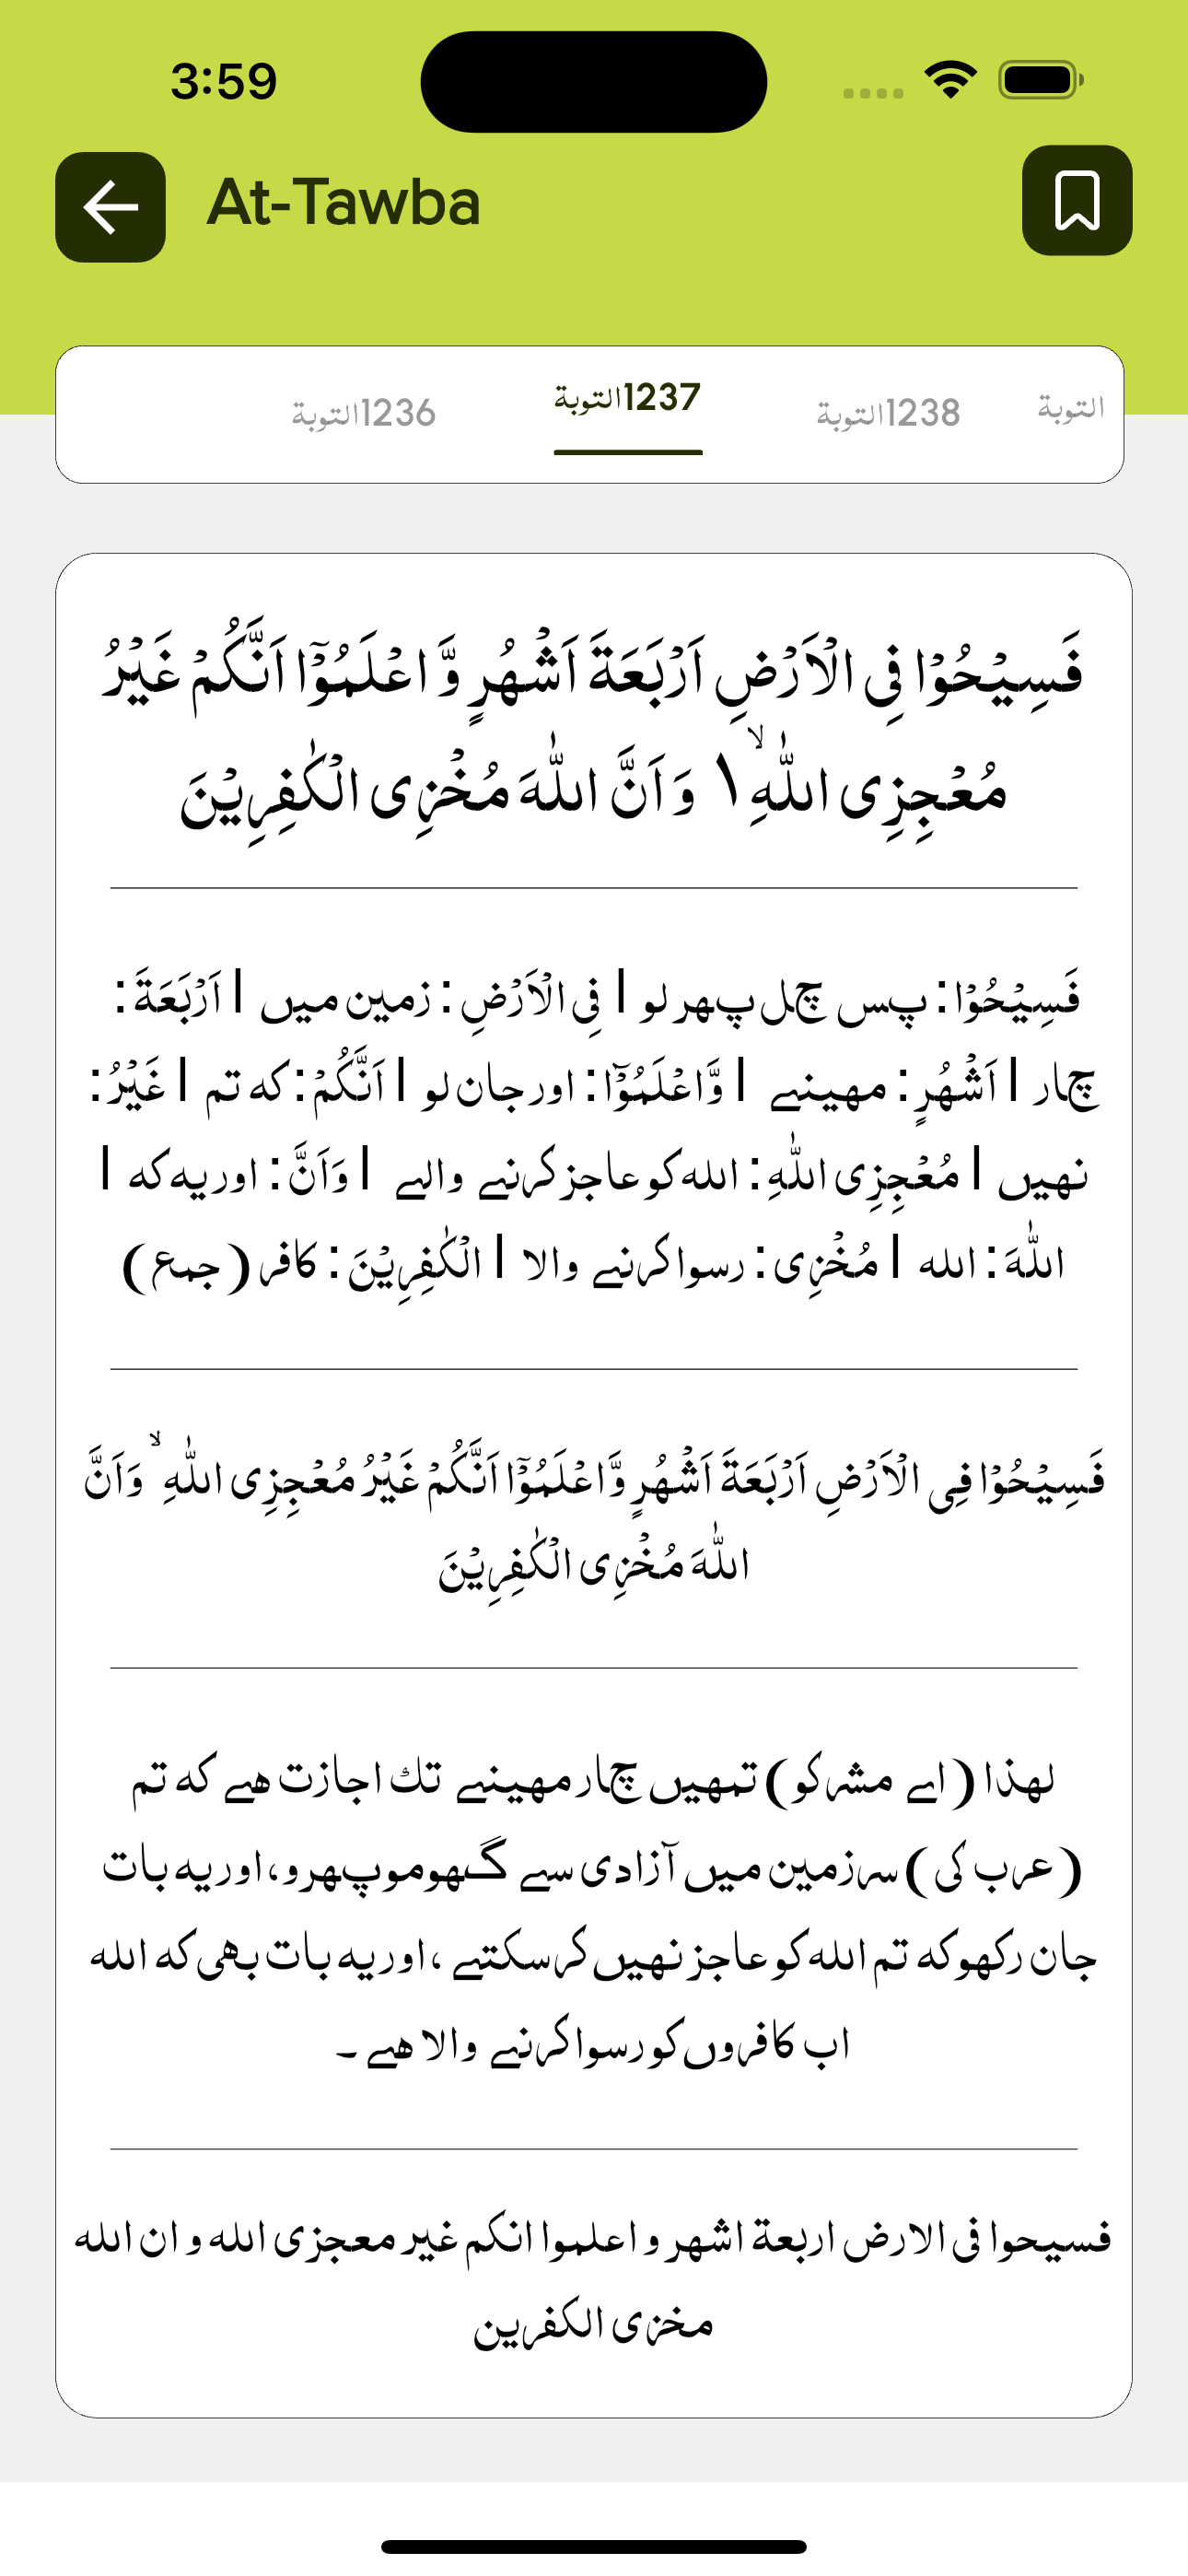 3:59
At-Tawba
1236التوبة
1237التوبة
1238التوبة
التوبة
فَسِيۡحُوۡا فِى الۡاَرۡضِ اَرۡبَعَةَ اَشۡهُرٍ وَّ اعۡلَمُوۡۤا اَنَّكُمۡ غَيۡرُ
مُعۡجِزِى اللّٰهِۙ‏ ١ وَ اَنَّ اللّٰهَ مُخۡزِى الۡكٰفِرِيۡنَ
فَسِيۡحُوۡا : پس چل پھر لو | فِي الۡاَرۡضِ : زمین میں | اَرۡبَعَةَ :
چار | اَشۡهُرٍ : مهینے | وَّاعۡلَمُوۡۤا : اور جان لو | اَنَّكُمۡ : که تم | غَيۡرُ :
نهیں | مُعۡجِزِي اللّٰهِ : الله کو عاجز کرنے والے | وَاَنَّ : اور یه که |
اللّٰهَ : الله | مُخۡزِي : رسوا کرنے والا | الۡكٰفِرِيۡنَ : کافر (جمع)
فَسِيۡحُوۡا فِى الۡاَرۡضِ اَرۡبَعَةَ اَشۡهُرٍ وَّاعۡلَمُوۡۤا اَنَّكُمۡ غَيۡرُ مُعۡجِزِى اللّٰهِ ۙ وَاَنَّ
اللّٰهَ مُخۡزِى الۡكٰفِرِيۡنَ
لهذا (اے مشرکو) تمهیں چار مهینے تك اجازت هے که تم
(عرب کی) سرزمین میں آزادی سے گھومو پھرو، اور یه بات
جان رکھو که تم الله کو عاجز نهیں کرسکتے ، اور یه بات بھی که الله
اب کافروں کو رسوا کرنے والا هے ۔
فسيحوا في الارض اربعة اشهر و اعلموا انكم غير معجزي الله و ان الله
مخزي الكفرين